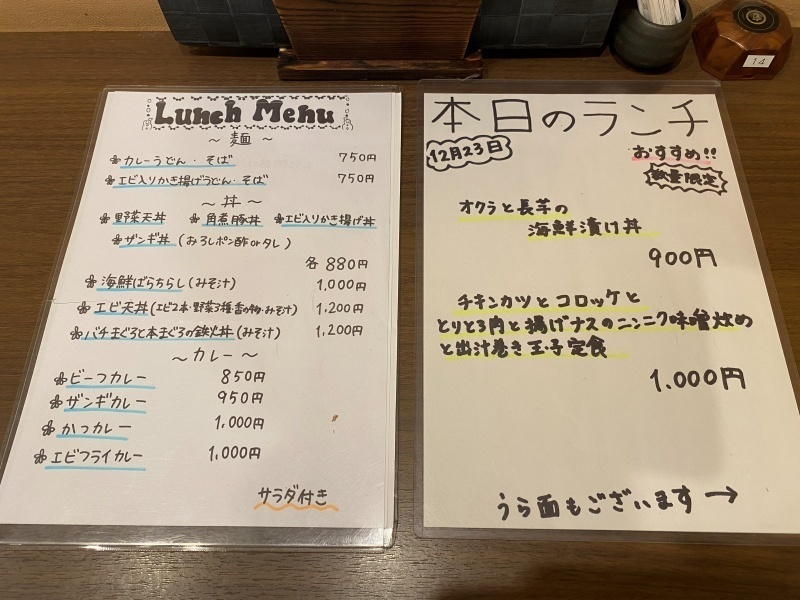 Lunch Menu
~ 麺 ~
カレーうどん・そば 750円
エビ入りかき揚げうどん・そば 750円
~ 丼 ~
野菜天丼 角煮豚丼 エビ入りかき揚げ丼
ザンギ丼 (おろしポン酢orタレ)
各880円
海鮮ばらちらし(みそ汁) 1,000円
エビ天丼(エビ2本・野菜3種・香の物・みそ汁) 1,200円
バチまぐろと本まぐろの鉄火丼(みそ汁) 1,200円
~ カレー ~
ビーフカレー 850円
ザンギカレー 950円
かつカレー 1,000円
エビフライカレー 1,000円
サラダ付き
本日のランチ
12月23日
おすすめ!!
数量限定
オクラと長芋の
海鮮漬け丼
900円
チキンカツとコロッケと
とりとろ肉と揚げナスのニンニク味噌炒め
と出汁巻き玉子定食
1,000円
うら面もございます→
14